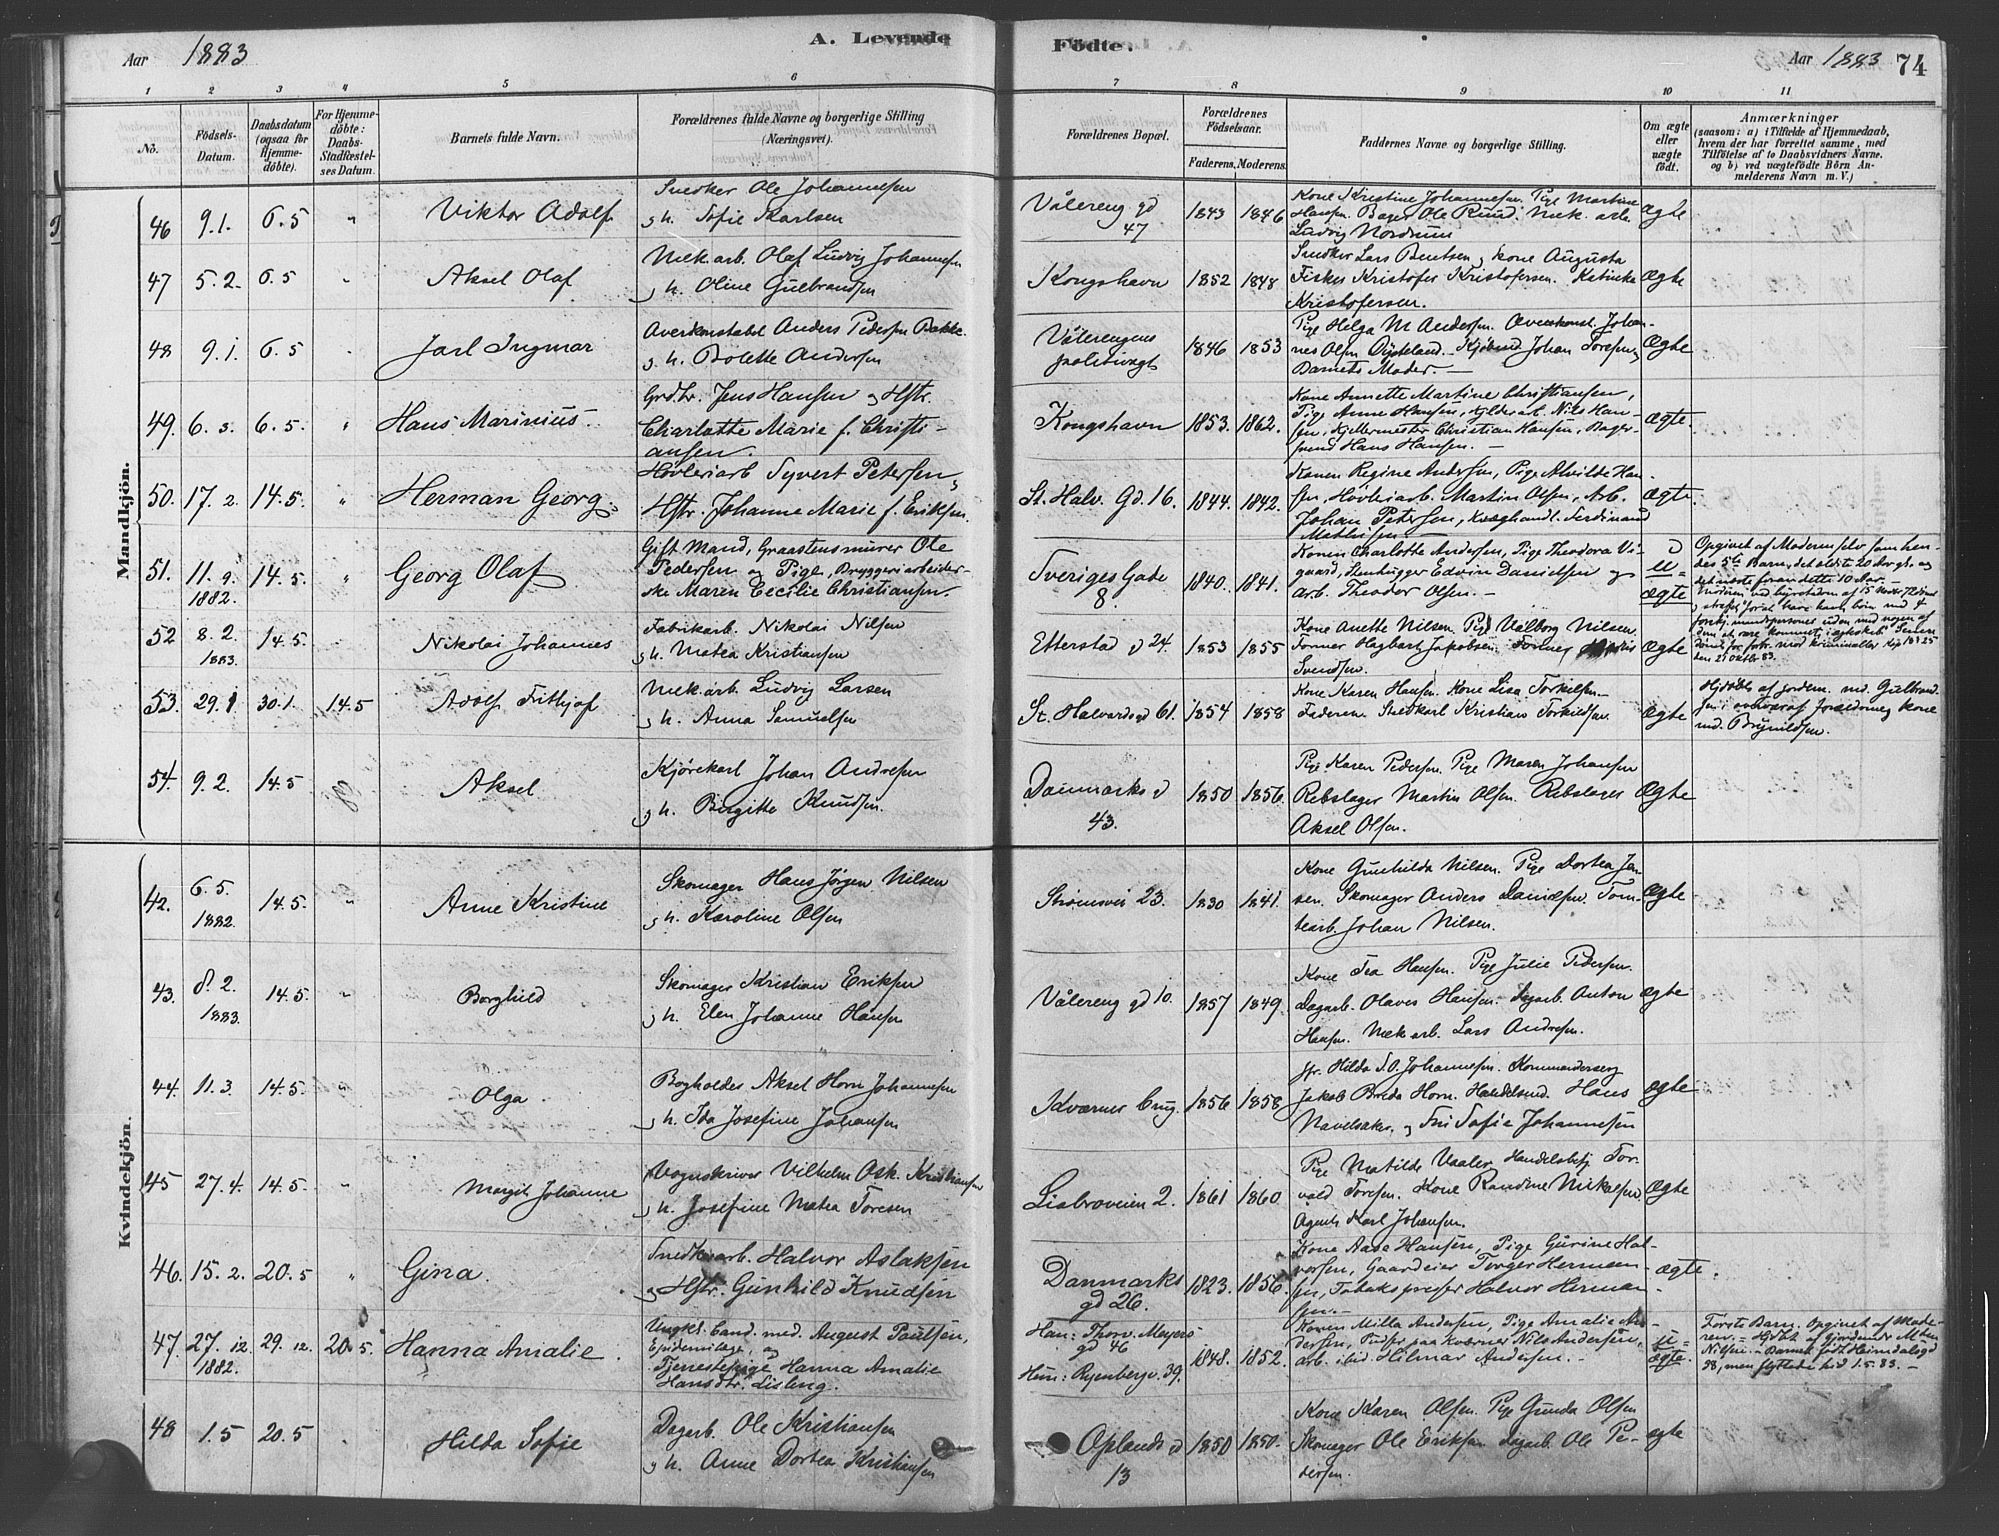 Aar 1883
A. Levende
Födte.
Aar 1883
74
1 2 3 4 5 6 7 8 9 10 11
No.
Födsels-
Datum.
Daabsdatum
(ogsaa for
Hjemme-
döbte).
For Hjemme-
döbte:
Daabs-
Stadfæstel-
ses Datum.
Barnets fulde Navn.
Forældrenes fulde Navne og borgerlige Stilling
(Næringsvei).
Forældrenes Bopæl.
Forældrenes
Födselsaar.
Faderens. Moderens.
Faddernes Navne og borgerlige Stilling.
Om ægte
eller
uægte
födt.
Anmærkninger
(saasom: a) i Tilfælde af Hjemmedaab,
hvem der har forrettet samme, med
Tilföielse af to Daabsvidners Navne,
og b) ved uægtefödte Börn An-
melderens Navn m. V.)
Mandkjön.
46 9.1. 6.5 " Viktor Adolf
Snedker Ole Johannesen
og h. Sofie Karlsen
Vålereng gd
47
1843 1846
Kone Kristine Johannesen. Pige Martine
Hansen. Bager Ole Ruud. Mek. arb.
Ludvig Nordrum
Ægte
47 5.2. 6.5 " Aksel Olaf
Mek. arb. Olaf Ludvig Johannesen
og h. Oline Gulbrandsen
Kongshavn
1852 1848
Snedker Lars Bentsen og kone Augusta
Fisker Kristofer Kristofersen. Katinka
Kristofersen.
Ægte
48 9.1. 6.5 Jarl Ingmar
Overkonstabel Anders Pedersen Bakke
og h. Bolette Andersen
Vålerengens
politivagt
1846 1853
Pige Helga M Andersen. Overkonst. Johan-
nes Olsen Johan Toresen,
Barnets Moder.
Ægte
49. 6.3. 6.5. " Hans Marinius
Grdbr. Jens Hansen og Hstr.
Charlotte Marie f. Christi-
ansen.
Kongshavn
1853. 1862.
Kone Annette Martine Christiansen,
Pige Anne Hansen, arb. Nils Han-
sen, Kjeldermester Christian Hansen, Bager-
svend Hans Hansen.
Ægte.
50. 17.2. 14.5. " Herman Georg.
Høvleriarb Syvert Petersen,
Hstr. Johanne Marie f. Eriksen.
St. Halv. Gd. 16.
1844. 1842.
Konen Regine Andersen, Pige Alvilde Han-
sen, Høvleriarb. Martin Olsen, Arb.
Johan Petersen, Ferdinand
Mathisen
Ægte.
51. 11.9.
1882.
14.5. " Georg Olaf
Gift Mand, Graastensmurer Ole
Pedersen og Pige, Bryggeriarbeider-
ske Maren Cecilie Christiansen.
Sveriges Gade
8.
1840. 1841.
Konen Charlotte Andersen, Pige Theodora Vi-
gaard, Stenhugger Edvin Danielsen og
arb. Theodor Olsen.
u=
ægte
Opgivet af Moderen selv som hen-
des 5te Barn, det ældste 20 Aar gl. og
det næste foran dette 10 Aar.
52 8.2.
1883.
14.5. Nikolai Johannes
Fabrikarb. Nikolai Nilsen
og h. Matea Kristiansen
Etterstad 24.
1853 1855
Kone Anette Nilsen. Pige Valborg Nilsen.
Former Hagbart Jakobsen. Former
Svendsen.
Ægte
53. 29.1 30.1. 14.5 Adolf Frithjof
Mek. arb. Ludvig Larsen
og h. Anna Samuelsen
St. Halvards gd 61.
1854 1858
Kone Karen Hansen. Kone Lisa Torkilsen
Faderen Kristian Torkildsen
Ægte
Hjdöbt af jordem. md. Gulbrand-
sen i overvær af forældrene og kone
md. Brynildsen.
54. 9.2. 14.5. Aksel
Kjørekarl Johan Andresen
og h. Birgitte Knudsen.
Danmarks
43.
1850 1856.
Pige Karen Pedersen. Pige Maren Johansen
Rebslager Martin Olsen. Rebslager
Aksel Olsen.
Ægte
Kvindekjön.
42. 6.5.
1882.
14.5. " Anne Kristine
Skomager Hans Jørgen Nilsen
og h. Karoline Olsen
Strømsvei 23.
1830 1841.
Kone Gunhilda Nilsen. Pige Dortea Jan-
sen. Skomager Anders Danielsen. Tom-
tearb. Johan Nilsen.
Ægte
43. 8.2.
1883.
14.5. " Borghild
Skomager Kristian Eriksen
og h. Elen Johanne Hansen
Vålereng gd 10.
1857 1849.
Kone Tea Hansen. Pige Julie Pedersen.
Dagarb. Olaves Hansen. Dagarb. Anton
Hansen. Mek arb. Lars Andresen.
Ægte
44. 11.3 14.5. " Olga.
Bogholder Aksel Horn Johannesen
og h. Ida Josefine Johansen
Kværner brug.
1856 1858
Fr. Hilda S.O. Johannesen.
Jakob Breda Horn. Handelsmd. Hans
og Fru Sofie Johannesen
Ægte
45 27.4. 14.5. " Margit Johanne
Vognskriver Vilhelm Osk. Kristiansen
og h. Josefine Matea Toresen
Liabroveien 2.
1861 1860
Pige Matilde Vaaler. Handelsbetj. Tor-
vald Toresen. Kone Randine Mikalsen
Agent Karl Johansen.
Ægte
46. 15.2. 20.5 " Gina.
Snedkerarb. Halvor Aslaksen
og Hstr. Gunhild Knudsen
Danmarks
gd 26.
1823. 1856.
Kone Aase Hansen, Pige Gurine Hal-
vorsen, Gaardeier Torger Herman-
sen, Tobakspresser Halvor Herman-
sen.
Ægte.
47. 27.12.
1882.
29.12. 20.5. Hanna Amalie.
Ungkl. Cand. med. August Paulsen,
Epidemilæge, og
Tjenestepige Hanna Amalie
Hansdtr. Lisleng.
Han: Thorv. Meyers
gd 46
Hun: Ryenbergv. 39.
1848. 1852.
Konen Milla Andersen, Pige Amalie An-
dersen, Pudser paa Kværner Nils Andersen,
arb. ibid. Hilmar Andersen.
u=
ægte.
Første Barn. Opgivet af Mode-
ren. Hjdöbt af gjordemd.
Nilsen. Barnet födt Heimdalsgd
28, men flyttede hid 1.5.83.
48 1.5 20.5 Hilda Sofie
Dagarb. Ole Kristiansen
og h. Anne Dortea Kristiansen
Oplands
13
1850 1850.
Kone Karen Olsen. Pige Gunda Olsen
Skomager Ole Eriksen. Dagarb. Ole Pe-
dersen.
Ægte